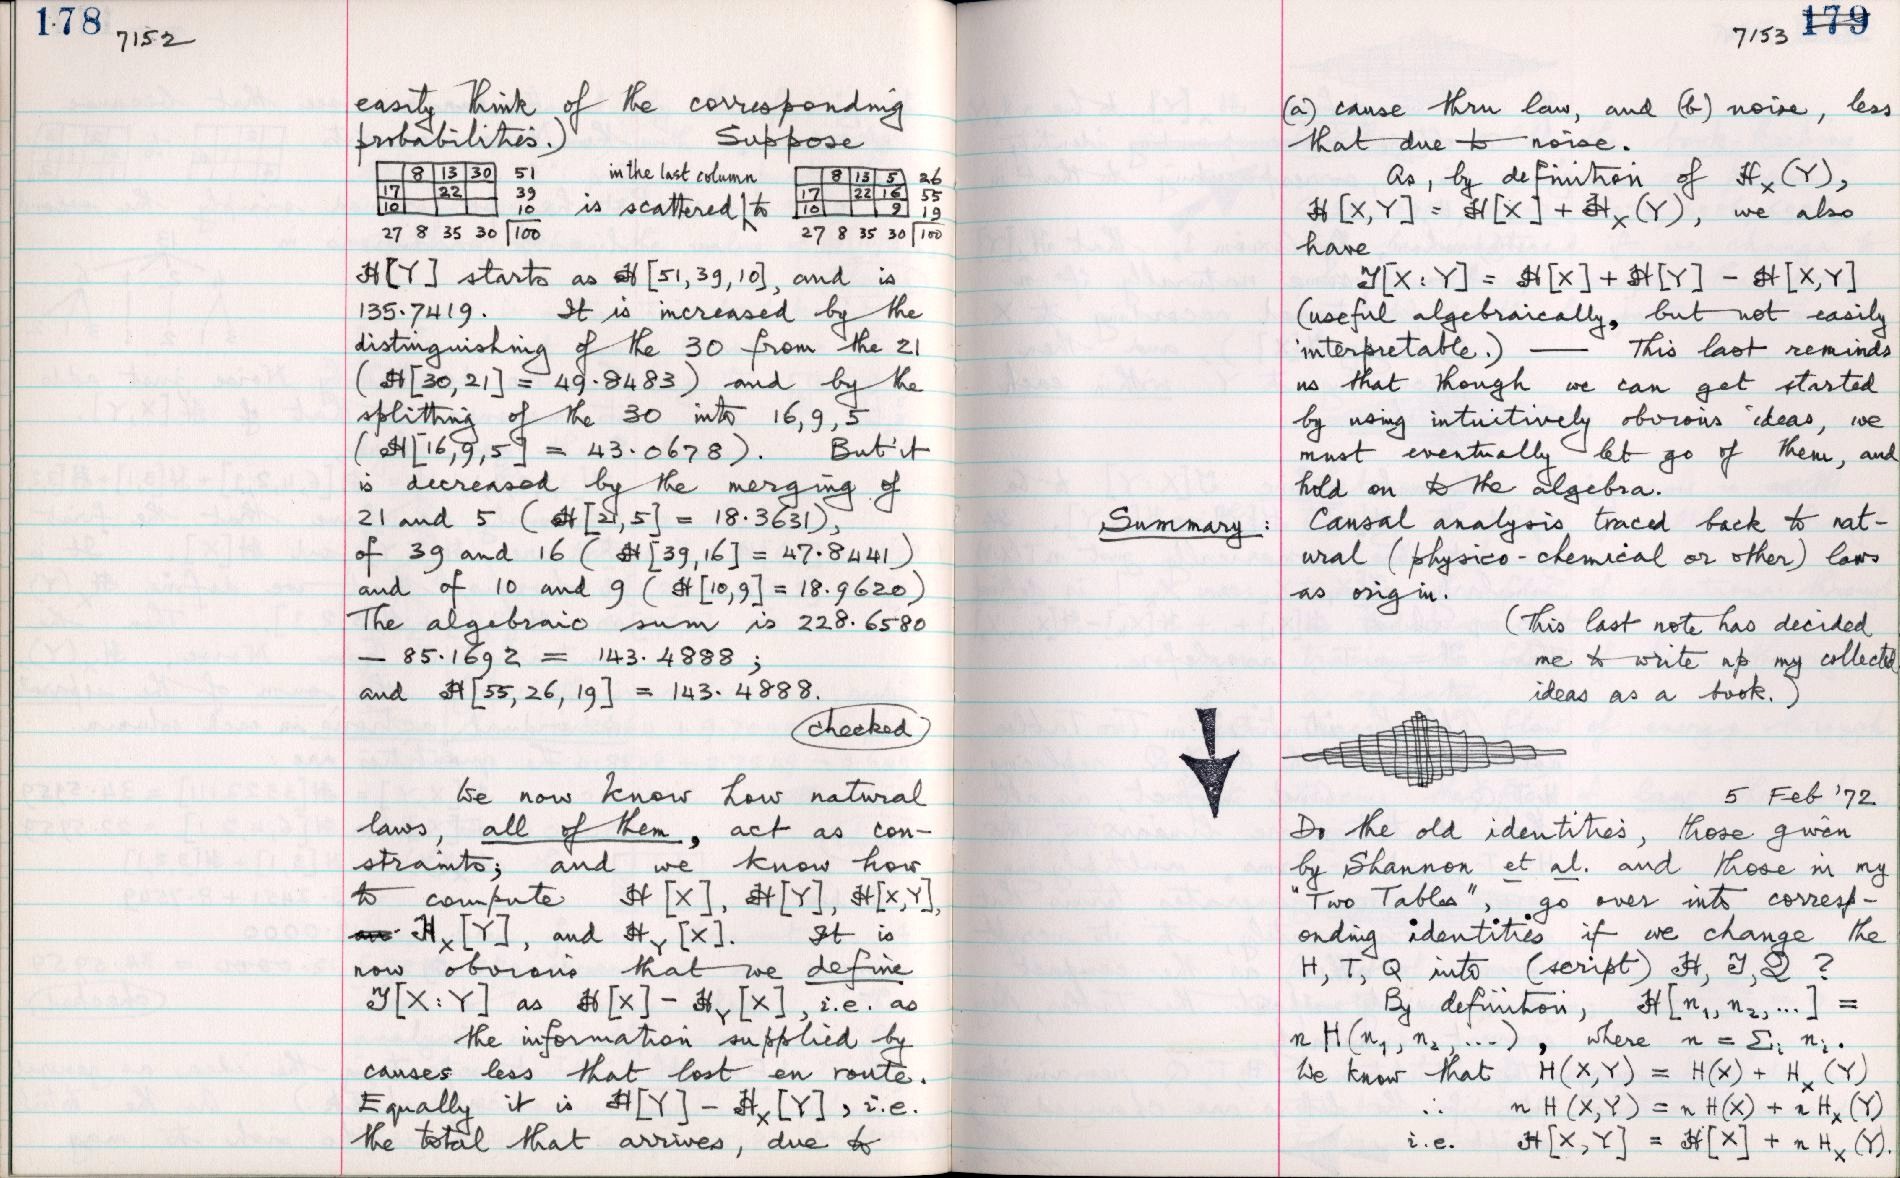 178
7152
easily think of the corresponding
probabilities.) Suppose
8 13 30 51 in the last column 8 13 5 26
17 22 39 is scattered to 17 22 16 55
10 10 10 9 19
27 8 35 30 100 27 8 35 30 100
ℋ[Y] starts as ℋ[51,39,10], and is
135·7419. It is increased by the
distinguishing of the 30 from the 21
(ℋ[30,21] = 49·8483) and by the
splitting of the 30 into 16,9,5
(ℋ[16,9,5] = 43·0678). But it
is decreased by the merging of
21 and 5 (ℋ[21,5] = 18·3631),
of 39 and 16 (ℋ[39,16] = 47·8441)
and of 10 and 9 (ℋ[10,9] = 18·9620)
The algebraic sum is 228·6580
— 85·1692 = 143·4888;
and ℋ[55,26,19] = 143·4888.
checked
We now know how natural
laws, all of them, act as con-
straints; and we know how
to compute ℋ[X], ℋ[Y], ℋ[X,Y],
ℋ_X[Y], and ℋ_Y[X]. It is
now obvious that we define
𝒯[X:Y] as ℋ[X] – ℋ_Y[X], i.e. as
the information supplied by
causes less that lost en route.
Equally it is ℋ[Y] – ℋ_X[Y], i.e.
the total that arrives, due to
7153 179
(a) cause thru law, and (b) noise, less
that due to noise.
As, by definition of ℋ_X(Y),
ℋ[X,Y] = ℋ[X] + ℋ_X(Y), we also
have
𝒯[X:Y] = ℋ[X] + ℋ[Y] – ℋ[X,Y]
(useful algebraically, but not easily
interpretable.) — This last reminds
us that though we can get started
by using intuitively obvious ideas, we
must eventually let go of them, and
hold on to the algebra.
Summary: Causal analysis traced back to nat-
ural (physico-chemical or other) laws
as origin.
(This last note has decided
me to write up my collected
ideas as a book.)
5 Feb '72
Do the old identities, those given
by Shannon et al. and those in my
"Two Tables", go over into corresp-
onding identities if we change the
H, T, Q into (script) ℋ, 𝒯, 𝒬 ?
By definition, ℋ[n₁, n₂, ...] =
n H(n₁, n₂, ...), where n = Σᵢ nᵢ.
We know that H(X,Y) = H(X) + H_X(Y)
∴ n H(X,Y) = n H(X) + n H_X(Y)
i.e. ℋ[X,Y] = ℋ[X] + n H_X(Y).